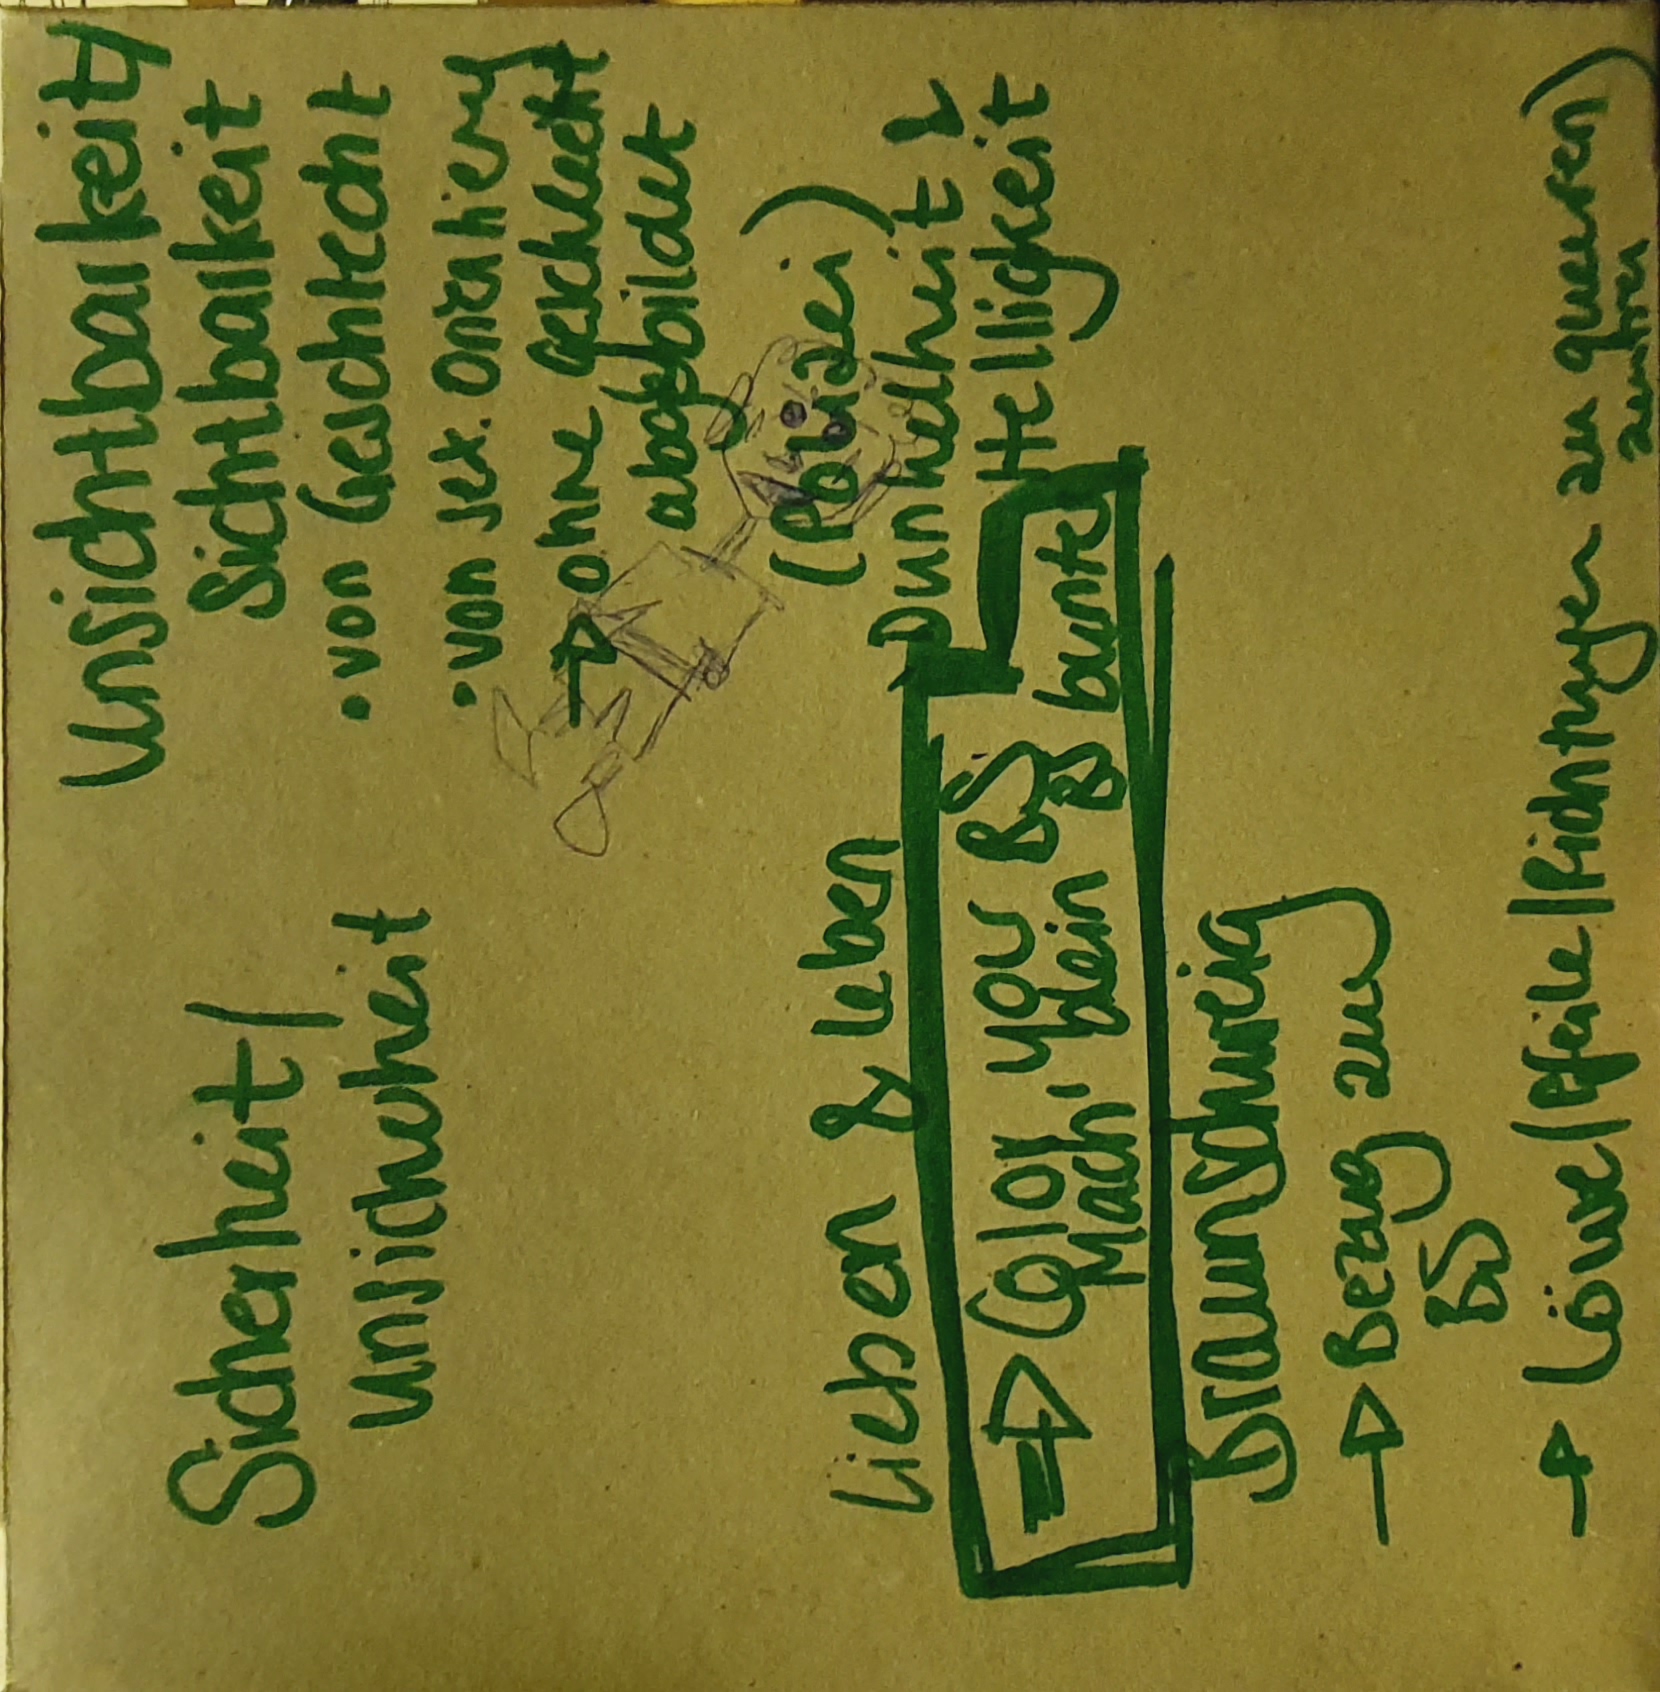 Sicherheit/
Unsicherheit
Unsichtbarkeit/
Sichtbarkeit
• von Geschlecht
• von sex. Orientierung
→ ohne Geschlecht
abgebildet
(Polizei)
Dunkelheit &
Helligkeit
Lieben & Leben
⇒ Color you BS
Mach' dein BS bunter
Braunschweig
→ Bezug zu
BS
→ Löwe/Pfeile/Richtungen zu queeren
Zentren)